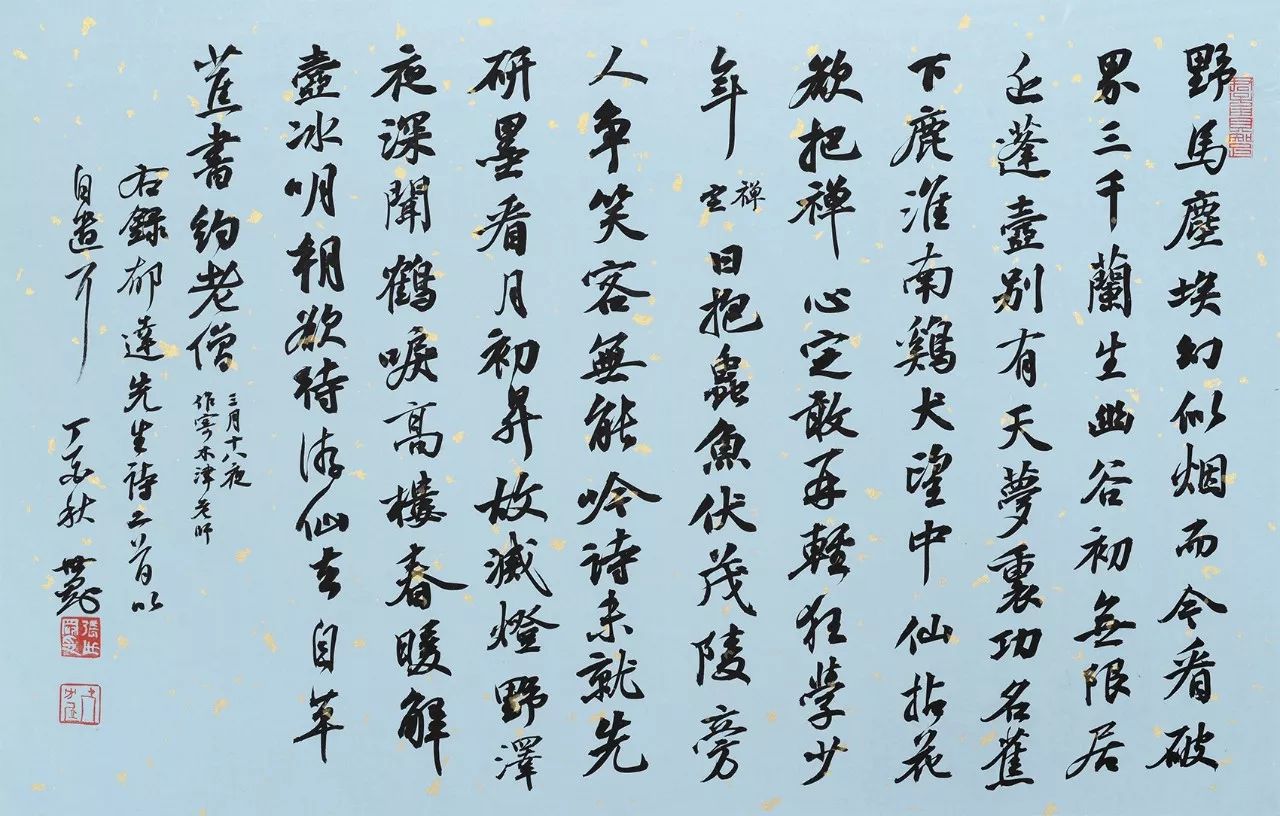 野馬塵埃幻似烟而今看破
界三千蘭生幽谷初無限居
近蓬壺別有天夢裏功名蕉
下鹿淮南鷄犬望中仙拈花
欲把禅心定敢再輕狂學少
年 禅定 日抱蟲魚伏茂陵旁
人争笑客無能吟诗未就先
研墨看月初昇故滅燈野澤
夜深聞鶴唳高樓春暖解
壺冰明朝欲待游仙去自草
蕉書約老僧 三月十八夜
作寄木津老師
右録郁達先生诗二首以
自遣耳 丁酉秋 世